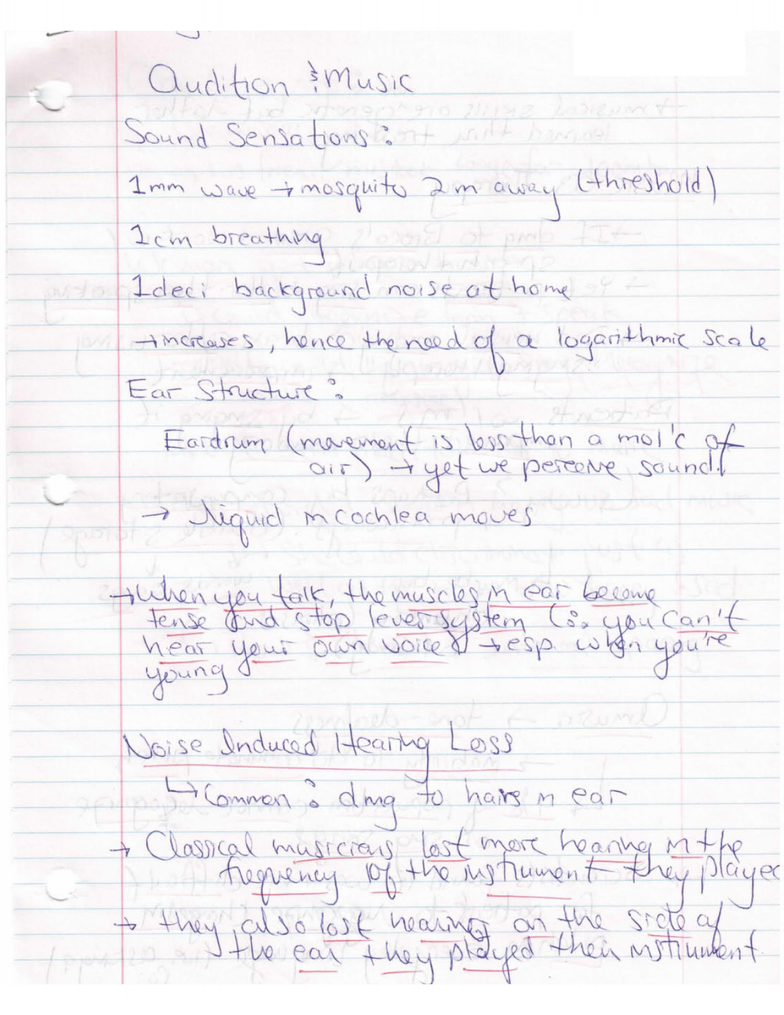 Audition & Music
Sound Sensations:
1mm wave → mosquito 2m away (threshold)
1cm breathing
1deci background noise at home
→ increases, hence the need of a logarithmic scale
Ear Structure:
Eardrum (movement is less than a mol'c of
air) → yet we perceive sound!
→ liquid in cochlea moves
→ When you talk, the muscles in ear become
tense and stop lever system (∴ you can't
hear your own voice) → esp when you're
young
Noise Induced Hearing Loss
↳ Common: dmg to hairs in ear
→ Classical musicians lost more hearing in the
frequency of the instrument they played
→ they also lost hearing on the side of
the ear they played their instrument.